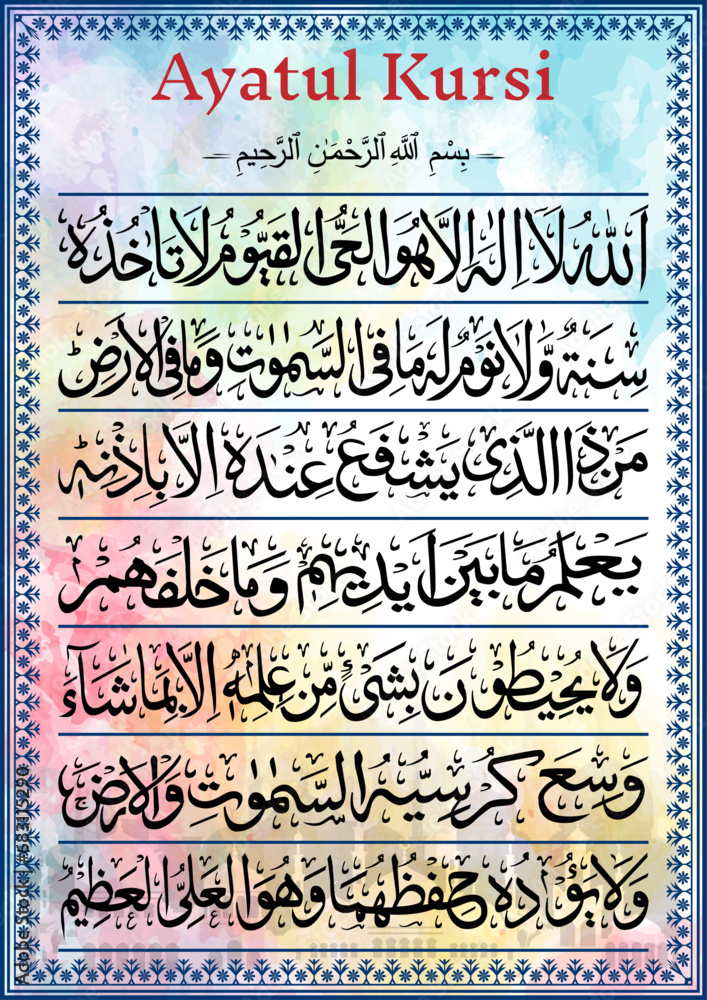 Ayatul Kursi
بِسْمِ ٱللَّهِ ٱلرَّحْمَٰنِ ٱلرَّحِيمِ
اَللّٰهُ لَاۤ اِلٰهَ اِلَّا هُوَ الْحَیُّ الْقَیُّوْمُ لَا تَاْخُذُهٗ
سِنَةٌ وَّلَا نَوْمٌ لَهٗ مَا فِی السَّمٰوٰتِ وَمَا فِی الْاَرْضِؕ
مَنْ ذَا الَّذِیْ یَشْفَعُ عِنْدَهٗۤ اِلَّا بِاِذْنِهٖؕ
یَعْلَمُ مَا بَیْنَ اَیْدِیْهِمْ وَمَا خَلْفَهُمْۚ
وَلَا یُحِیْطُوْنَ بِشَیْءٍ مِّنْ عِلْمِهٖۤ اِلَّا بِمَا شَآءَۚ
وَسِعَ كُرْسِیُّهُ السَّمٰوٰتِ وَالْاَرْضَۚ
وَلَا یَـُٔوْدُهٗ حِفْظُهُمَا وَهُوَ الْعَلِیُّ الْعَظِیْمُ
Adobe Stock | #683115290